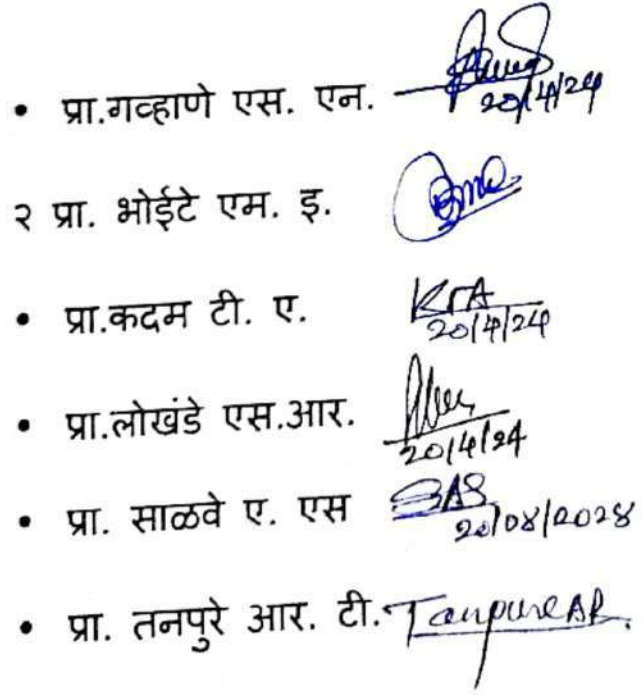 • प्रा.गव्हाणे एस. एन. 20/4/24
२ प्रा. भोईटे एम. इ.
• प्रा.कदम टी. ए. KTA 20/4/24
• प्रा.लोखंडे एस.आर. 20/4/24
• प्रा. साळवे ए. एस SAS २०/०४/२०२४
• प्रा. तनपुरे आर. टी. Tanpure AR.